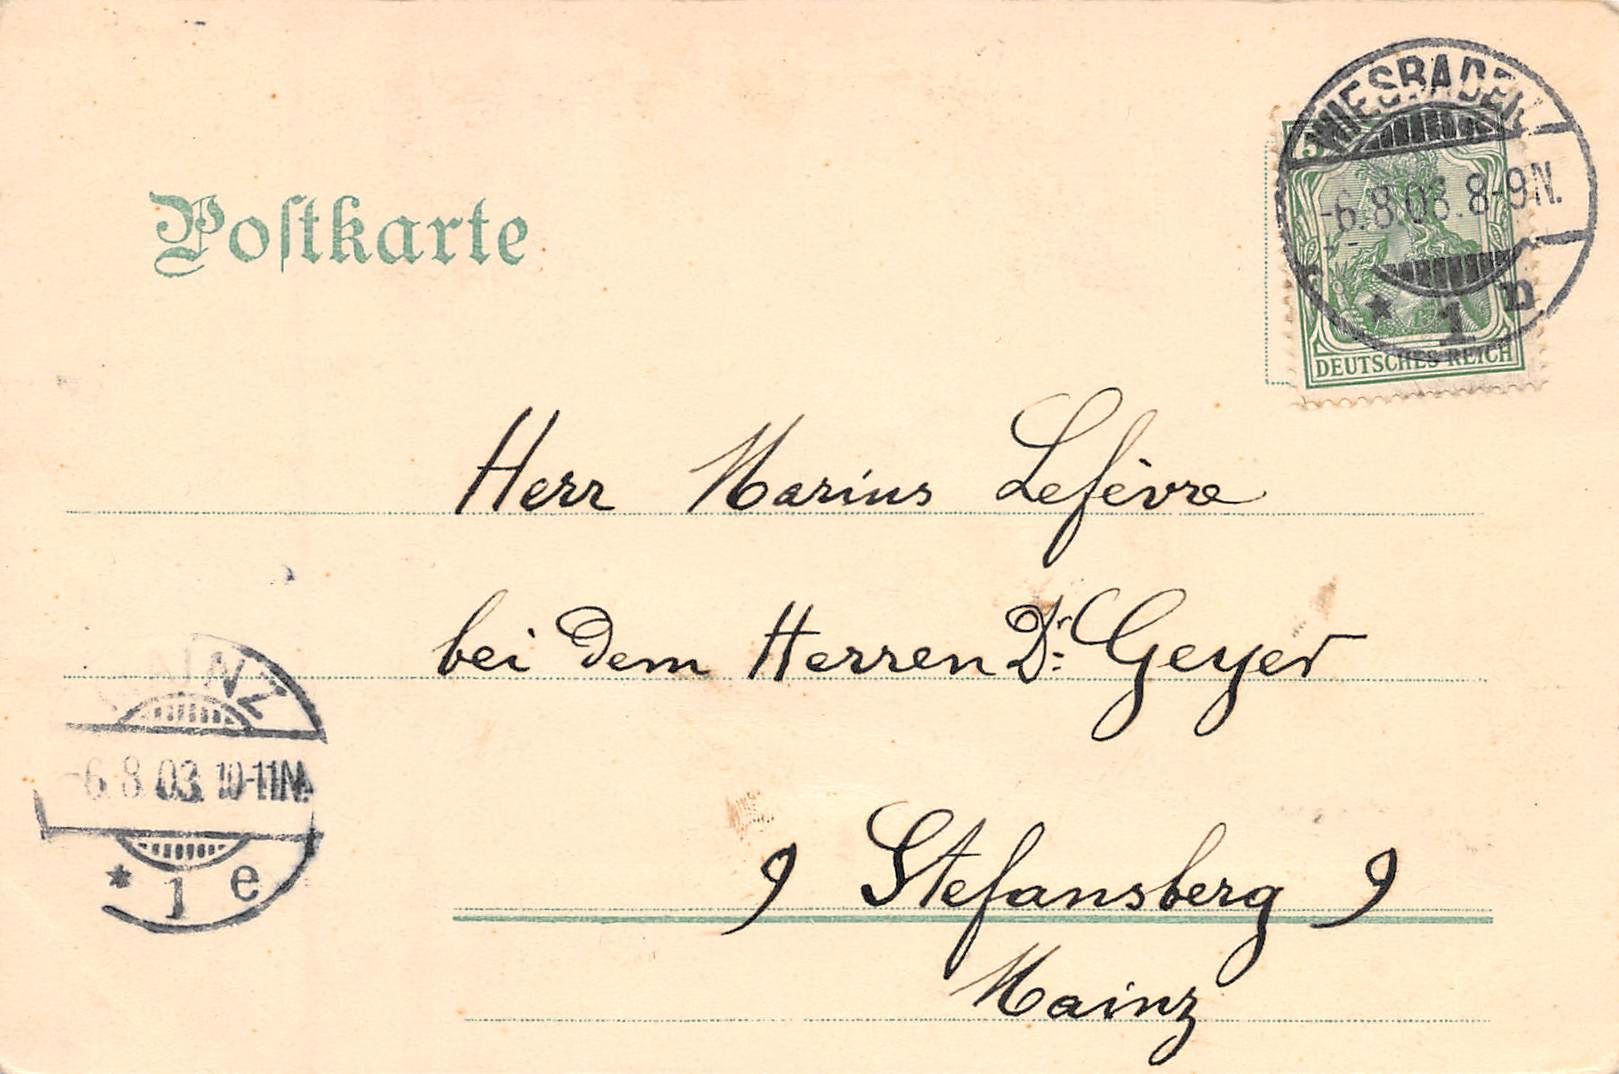 WIESBADEN
-6.8.03.8-9N.
* 1 n
5
DEUTSCHES REICH
Postkarte
Herr Marius Lefèvre
bei dem Herren Dr. Geyer
9 Stefansberg 9
Mainz
MAINZ
-6.8.03.10-11N.
* 1 e